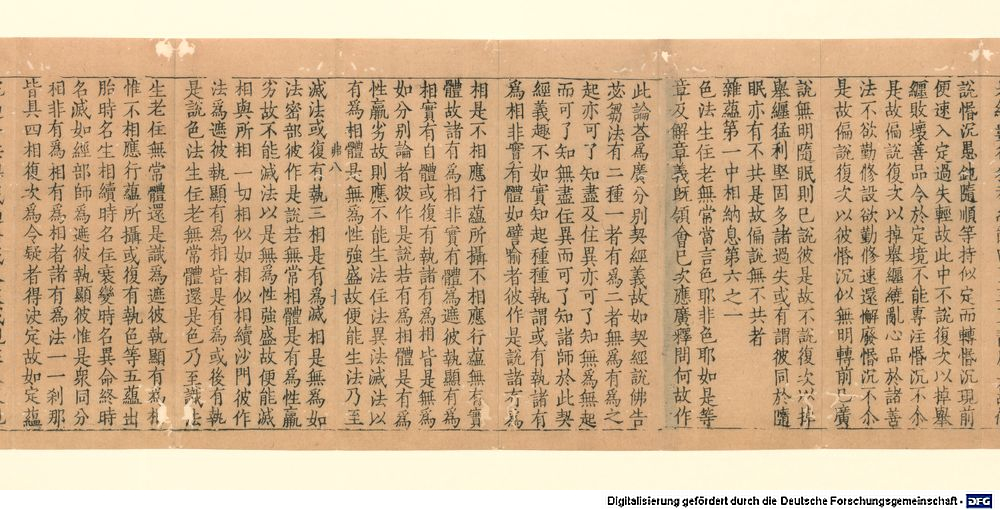 說惛沉愚鈍隨順等持似定而轉惛沉現前
便速入定過失輕故此中不說復次以掉舉
纏敗壞善品令於定境不能專注惛沉不尒
是故偏說復次以掉舉纏繞亂心品於諸善
法不欲勤修設欲勤修速還懈廢惛沉不尒
是故偏說復次以彼惛沉似無明轉前已廣
說無明隨眠則已說彼是故不說復次以掉
舉纏猛利堅固多諸過失或有謂彼同於隨
眠亦有不共是故偏說無不共者
雜蘊第一中相納息第六之一
色法生住老無常當言色耶非色耶如是等
章及解章義既領會已次應廣釋問何故作
此論荅為廣分別契經義故如契經說佛告
苾芻法有二種一者有為二者無為有為之
起亦可了知盡及住異亦可了知無為無起
而可了知無盡住異而可了知諸師於此契
經義趣不如實知起種種執謂或有執諸有
為相非實有體如譬喻者彼作是說諸有為
相是不相應行蘊所攝不相應行蘊無有實
體故諸有為相非實有體為遮彼執顯有為
相實有自體或復有執諸有為相皆是無為
如分別論者彼作是說若有為相體是有為
性羸劣故則應不能生法住法異法滅法以
有為相體是無為性強盛故便能生法乃至
弗八 十
滅法或復有執三相是有為滅相是無為如
法密部彼作是說若無常相體是有為性羸
劣故不能滅法以是無為性強盛故便能滅
相與所相一切相似如相似相續沙門彼作
法為遮彼執顯有為相皆是有為或復有執
是說色法生住老無常體還是色乃至識法
生老住無常體還是識為遮彼執顯有為相
惟不相應行蘊所攝或復有執色等五蘊出
胎時名生相續時名住衰變時名異命終時
名滅如經部師為遮彼執顯彼惟是眾同分
相非有為相有為相者諸有為法一一剎那
皆具四相復次為令疑者得決定故如定蘊
Digitalisierung gefördert durch die Deutsche Forschungsgemeinschaft - DFG